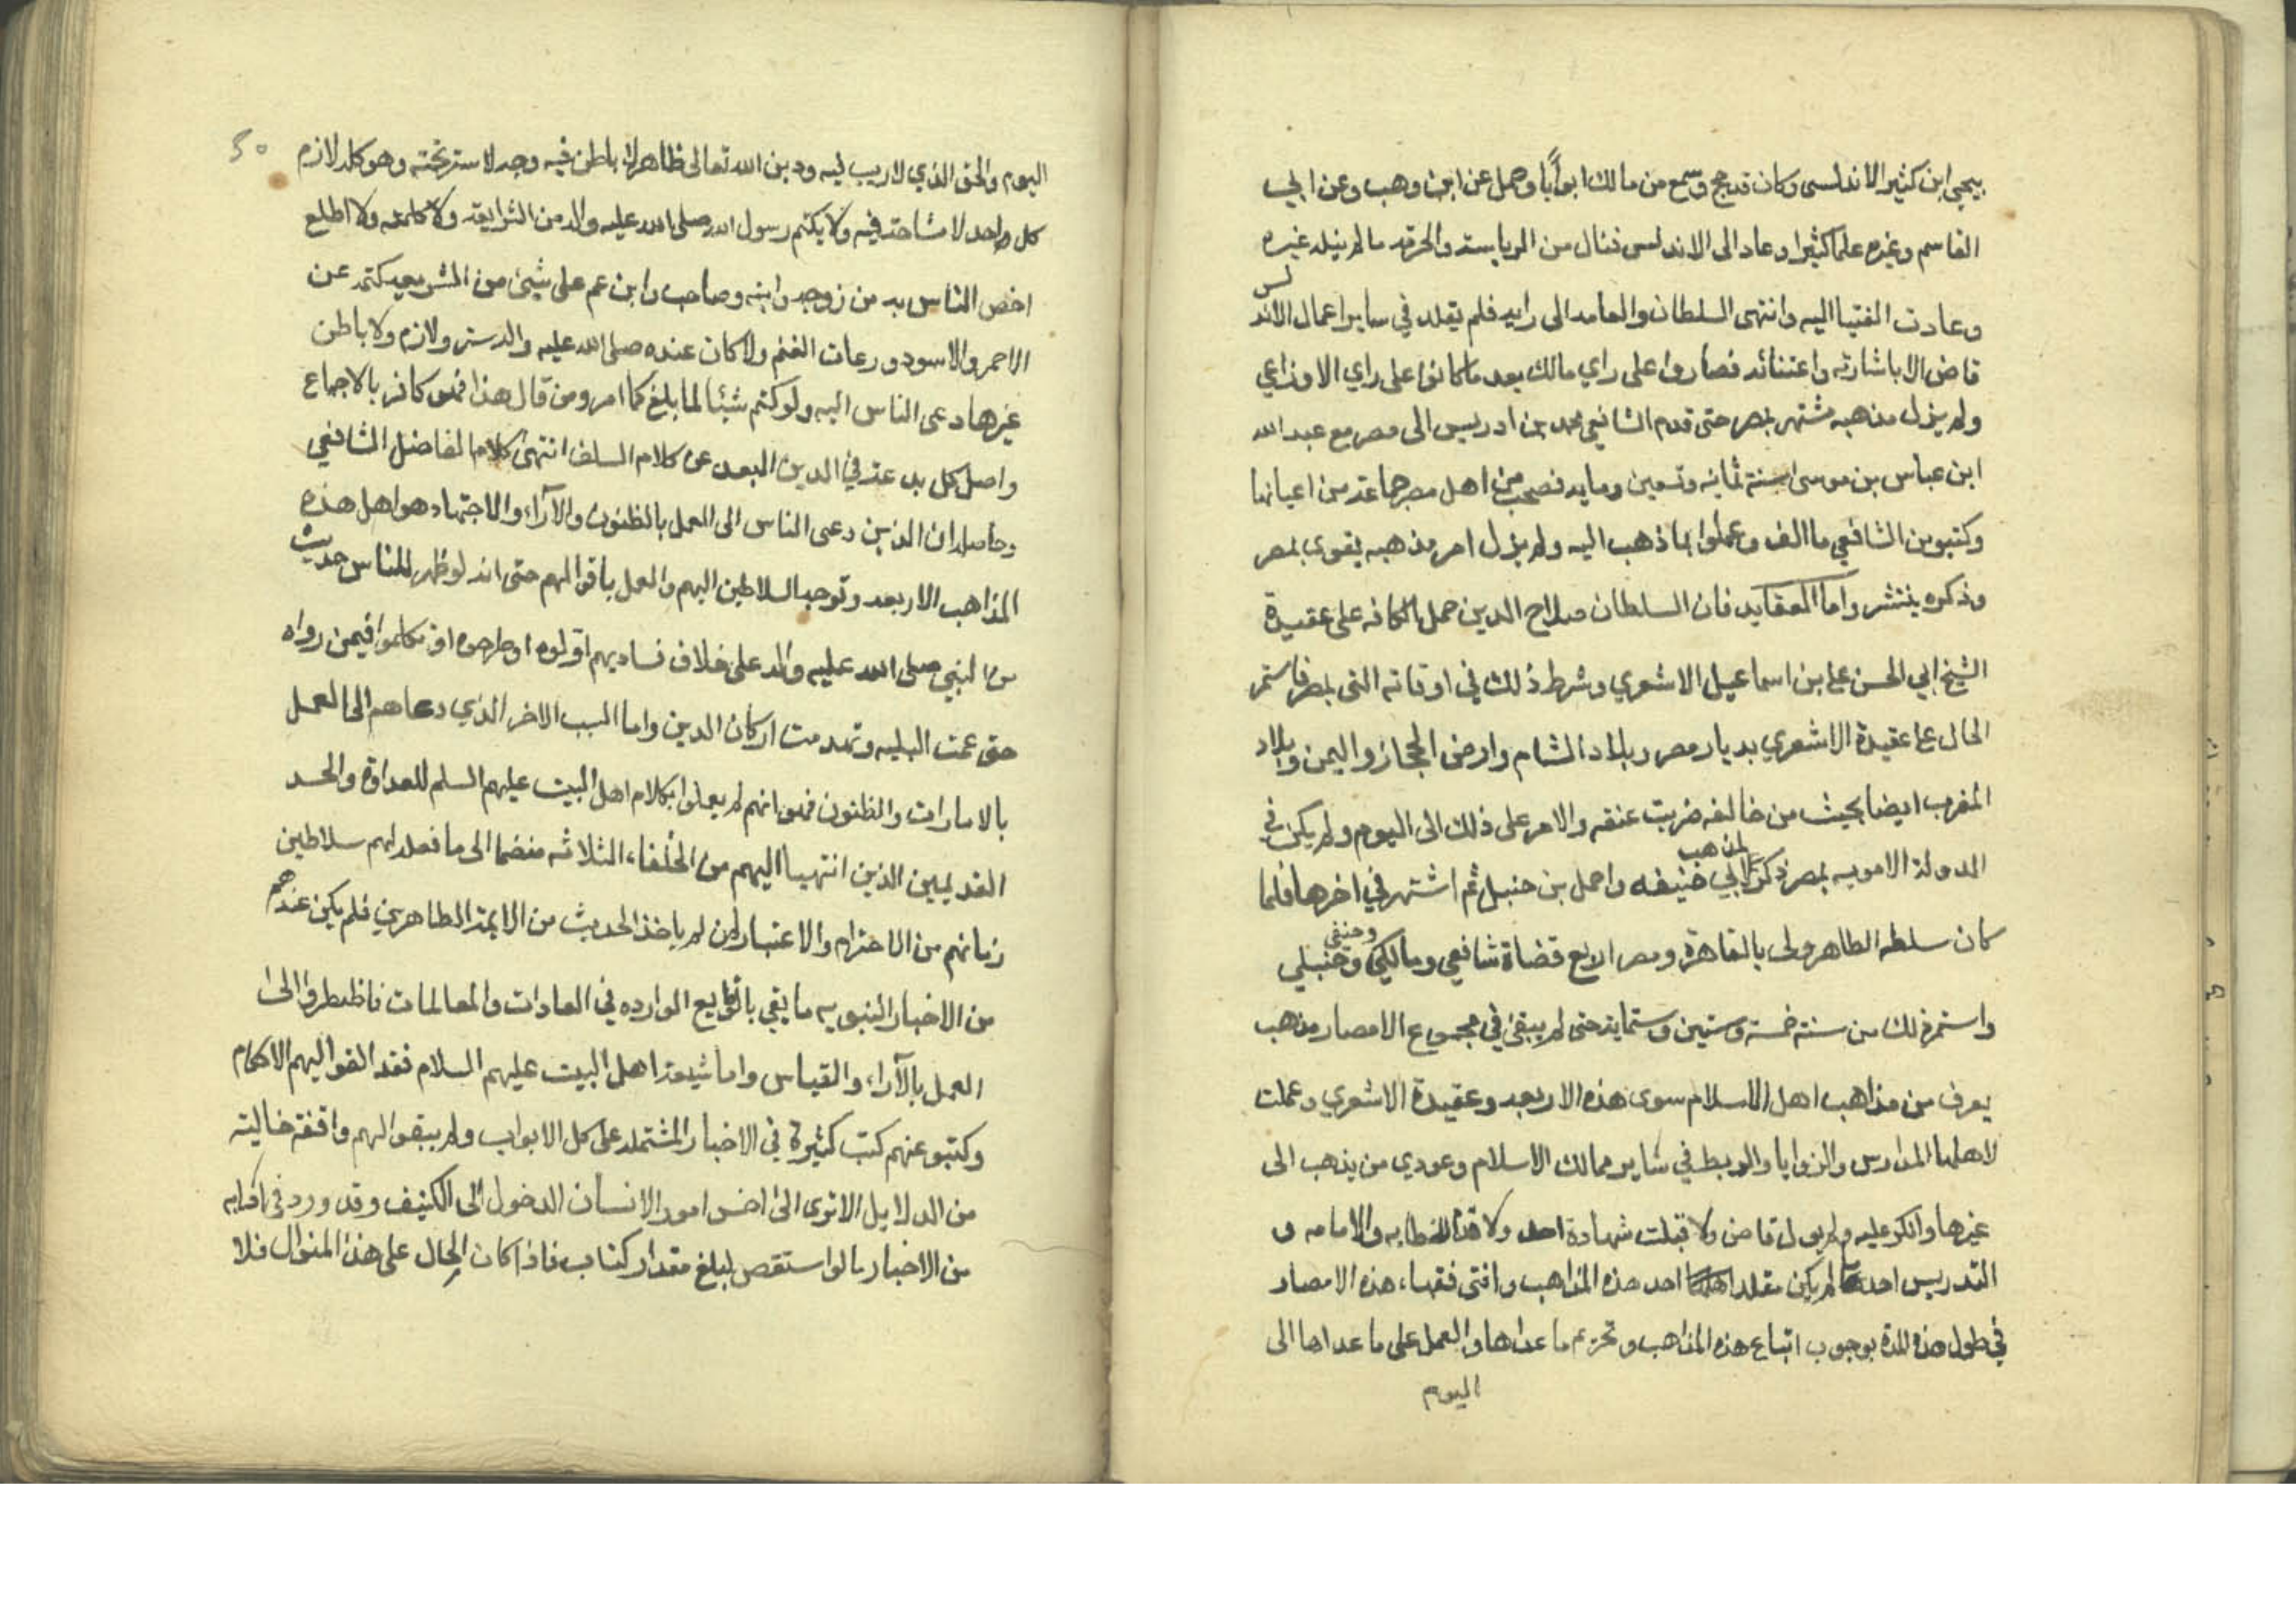 يحيى ابن كثير الاندلسي وكان قد حج وسمع من مالك ابوابًا وحمل عن ابن وهب وعن ابي
القاسم وغيره علما كثيرا وعاد الى الاندلس فنال من الرياسة والحرمة ما لم ينله غيره
وعادت الفتيا اليه وانتهى السلطان والعامه الى رايه فلم يقلد في ساير اعمال الاندلس
قاض الا باشارته واعتنائه فصاروا على راي مالك بعد ما كانوا على راي الاوزاعي
ولم يزل مذهبه مشتهر بمصر حتى قدم الشافعي محمد بن ادريس الى مصر مع عبد الله
ابن عباس بن موسى سنة ثمانيه وتسعين ومايه فصحب من اهل مصر جماعة من اعيانها
وكتبو من الشافعي ما الف وعملوا بما ذهب اليه ولم يزل امر مذهبه يقوى بمصر
وذكره ينتشر واما العقايد فان السلطان صلاح الدين حمل الكافه على عقيدة
الشيخ ابي الحسن علي بن اسماعيل الاشعري وشرط ذلك في اوقاته التي بمصر فاستمر
الحال على عقيدة الاشعري بديار مصر وبلاد الشام وارض الحجاز واليمن وبلاد
المغرب ايضا بحيث من خالفه ضربت عنقه والامر على ذلك الى اليوم ولم يكن في
الدولة الامويه بمصر ذكر لمذهب ابي حنيفه واحمد بن حنبل ثم اشتهر في اخرها فلما
كان سلطه الظاهر ولى بالقاهرة ومصر اربع قضاة شافعي ومالكي وحنفي وحنبلي
واستمر ذلك من سنة خمسة وستين وستماية حتى لم يبقى في مجموع الامصار مذهب
يعرف من مذاهب اهل الاسلام سوى هذه الاربعه وعقيدة الاشعري وعملت
لاهلها المدارس والزوايا والربط في ساير ممالك الاسلام وعودي من يذهب الى
غيرها وانكر عليه ولم يول قاض ولا قبلت شهادة احد ولا للخطابه والامامه و
التدريس احد لم يكن مقلدا احد هذه المذاهب وافتى فقهاء هذه الامصار
في طول هذه المدة بوجوب اتباع هذه المذاهب وتحريم ما عداها والعمل على ما عداها الى
اليوم
٥٠
اليوم والحق الذي لا ريب ليه ودين الله تعالى ظاهر لا باطن فيه وجهر لا ستر تحته وهو كله لازم
كل واحد لا مشاحة فيه ولا يكتم رسول الله صلى الله عليه واله من الشرايعة ولا كلمة ولا اطلع
اخص الناس به من زوجه وابنه وصاحب وابن عم على شيئ من الشريعه كتمه عن
الاحمر والاسود ورعات الغنم ولا كان عنده صلى الله عليه واله ستر ولازم ولا باطن
غيرها دعى الناس اليه ولو كتم شيئا لما بلغ كما امر ومن قال هذا فهو كافر بالاجماع
واصل كل بدعة في الدين البعد عن كلام السلف انتهى كلام الفاضل الشافعي
وحاصله ان الذين دعى الناس الى العمل بالظنون والآراء والاجتهاد هو اهل هذه
المذاهب الاربعه وتوجه السلاطين اليهم والعمل باقوالهم حتى انه لو ظهر للناس حديث
من النبي صلى الله عليه واله على خلاف فتاديهم اولوه او طرحوه او تكلموا فيمن رواه
حتى عمت البليه وتهدمت اركان الدين واما السبب الاخر الذي دعاهم الى العمل
بالامارات والظنون فهو انهم لم يعملوا بكلام اهل البيت عليهم السلم للعداوة والحسد
القديمين الذين انتهيا اليهم من الخلفاء الثلاثه منضما الى ما فعله لهم سلاطين
زمانهم من الاحترام والاعتبار لمن لم ياخذ الحديث من الايمة الطاهرين فلم يكن عندهم
من الاخبار النبويه ما يفي الوارده في العادات والمعالمات فاظطروا الى
العمل بالآراء والقياس واما شيعة اهل البيت عليهم السلام فقد القوا اليهم الاحكام
وكتبو عنهم كتب كثيرة في الاخبار المشتمله على كل الابواب ولم يبقوا لهم واقفة خالية
من الدلايل الاترى الى اخس امور الانسان الدخول الى الكنيف وقد ورد في ادابه
من الاخبار ما لو استقص لبلغ مقدار كتاب فاذا كان الحال على هذا المنوال فلا